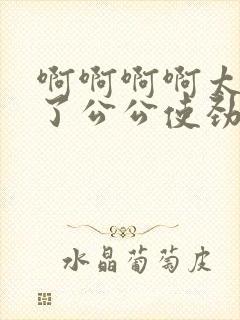 啊啊啊啊太
了公公使劲
水晶葡萄皮